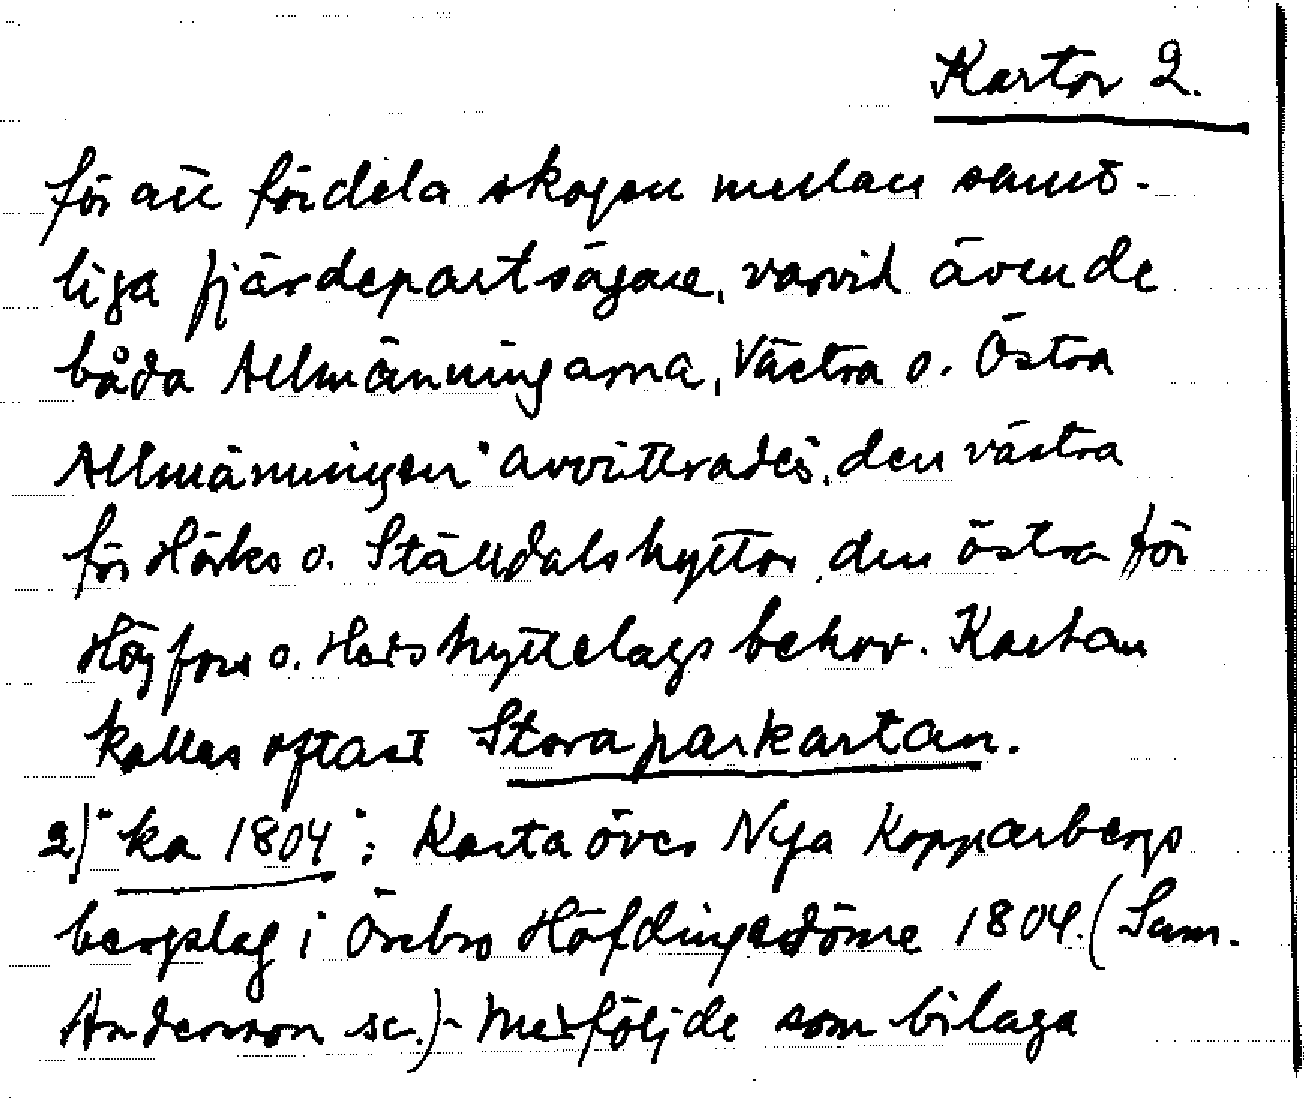 Kartor 2.
för att fördela skogen mellan samt-
liga fjärdepartsägare, varvid även de
båda Allmänningarna, Västra o. Östra
Allmänningen "avvittrades", den västra
för Hörks o. Ställdalshyttor, den östra för
Högfors o. Hors hyttelags behov. Kartan
kallas oftast Storaparkartan.
2) "ka 1804": Karta över Nya Kopparbergs
bergslag i Örebro Höfdingedöme 1804. (Sam.
Anderson sc.) - Medföljde som bilaga